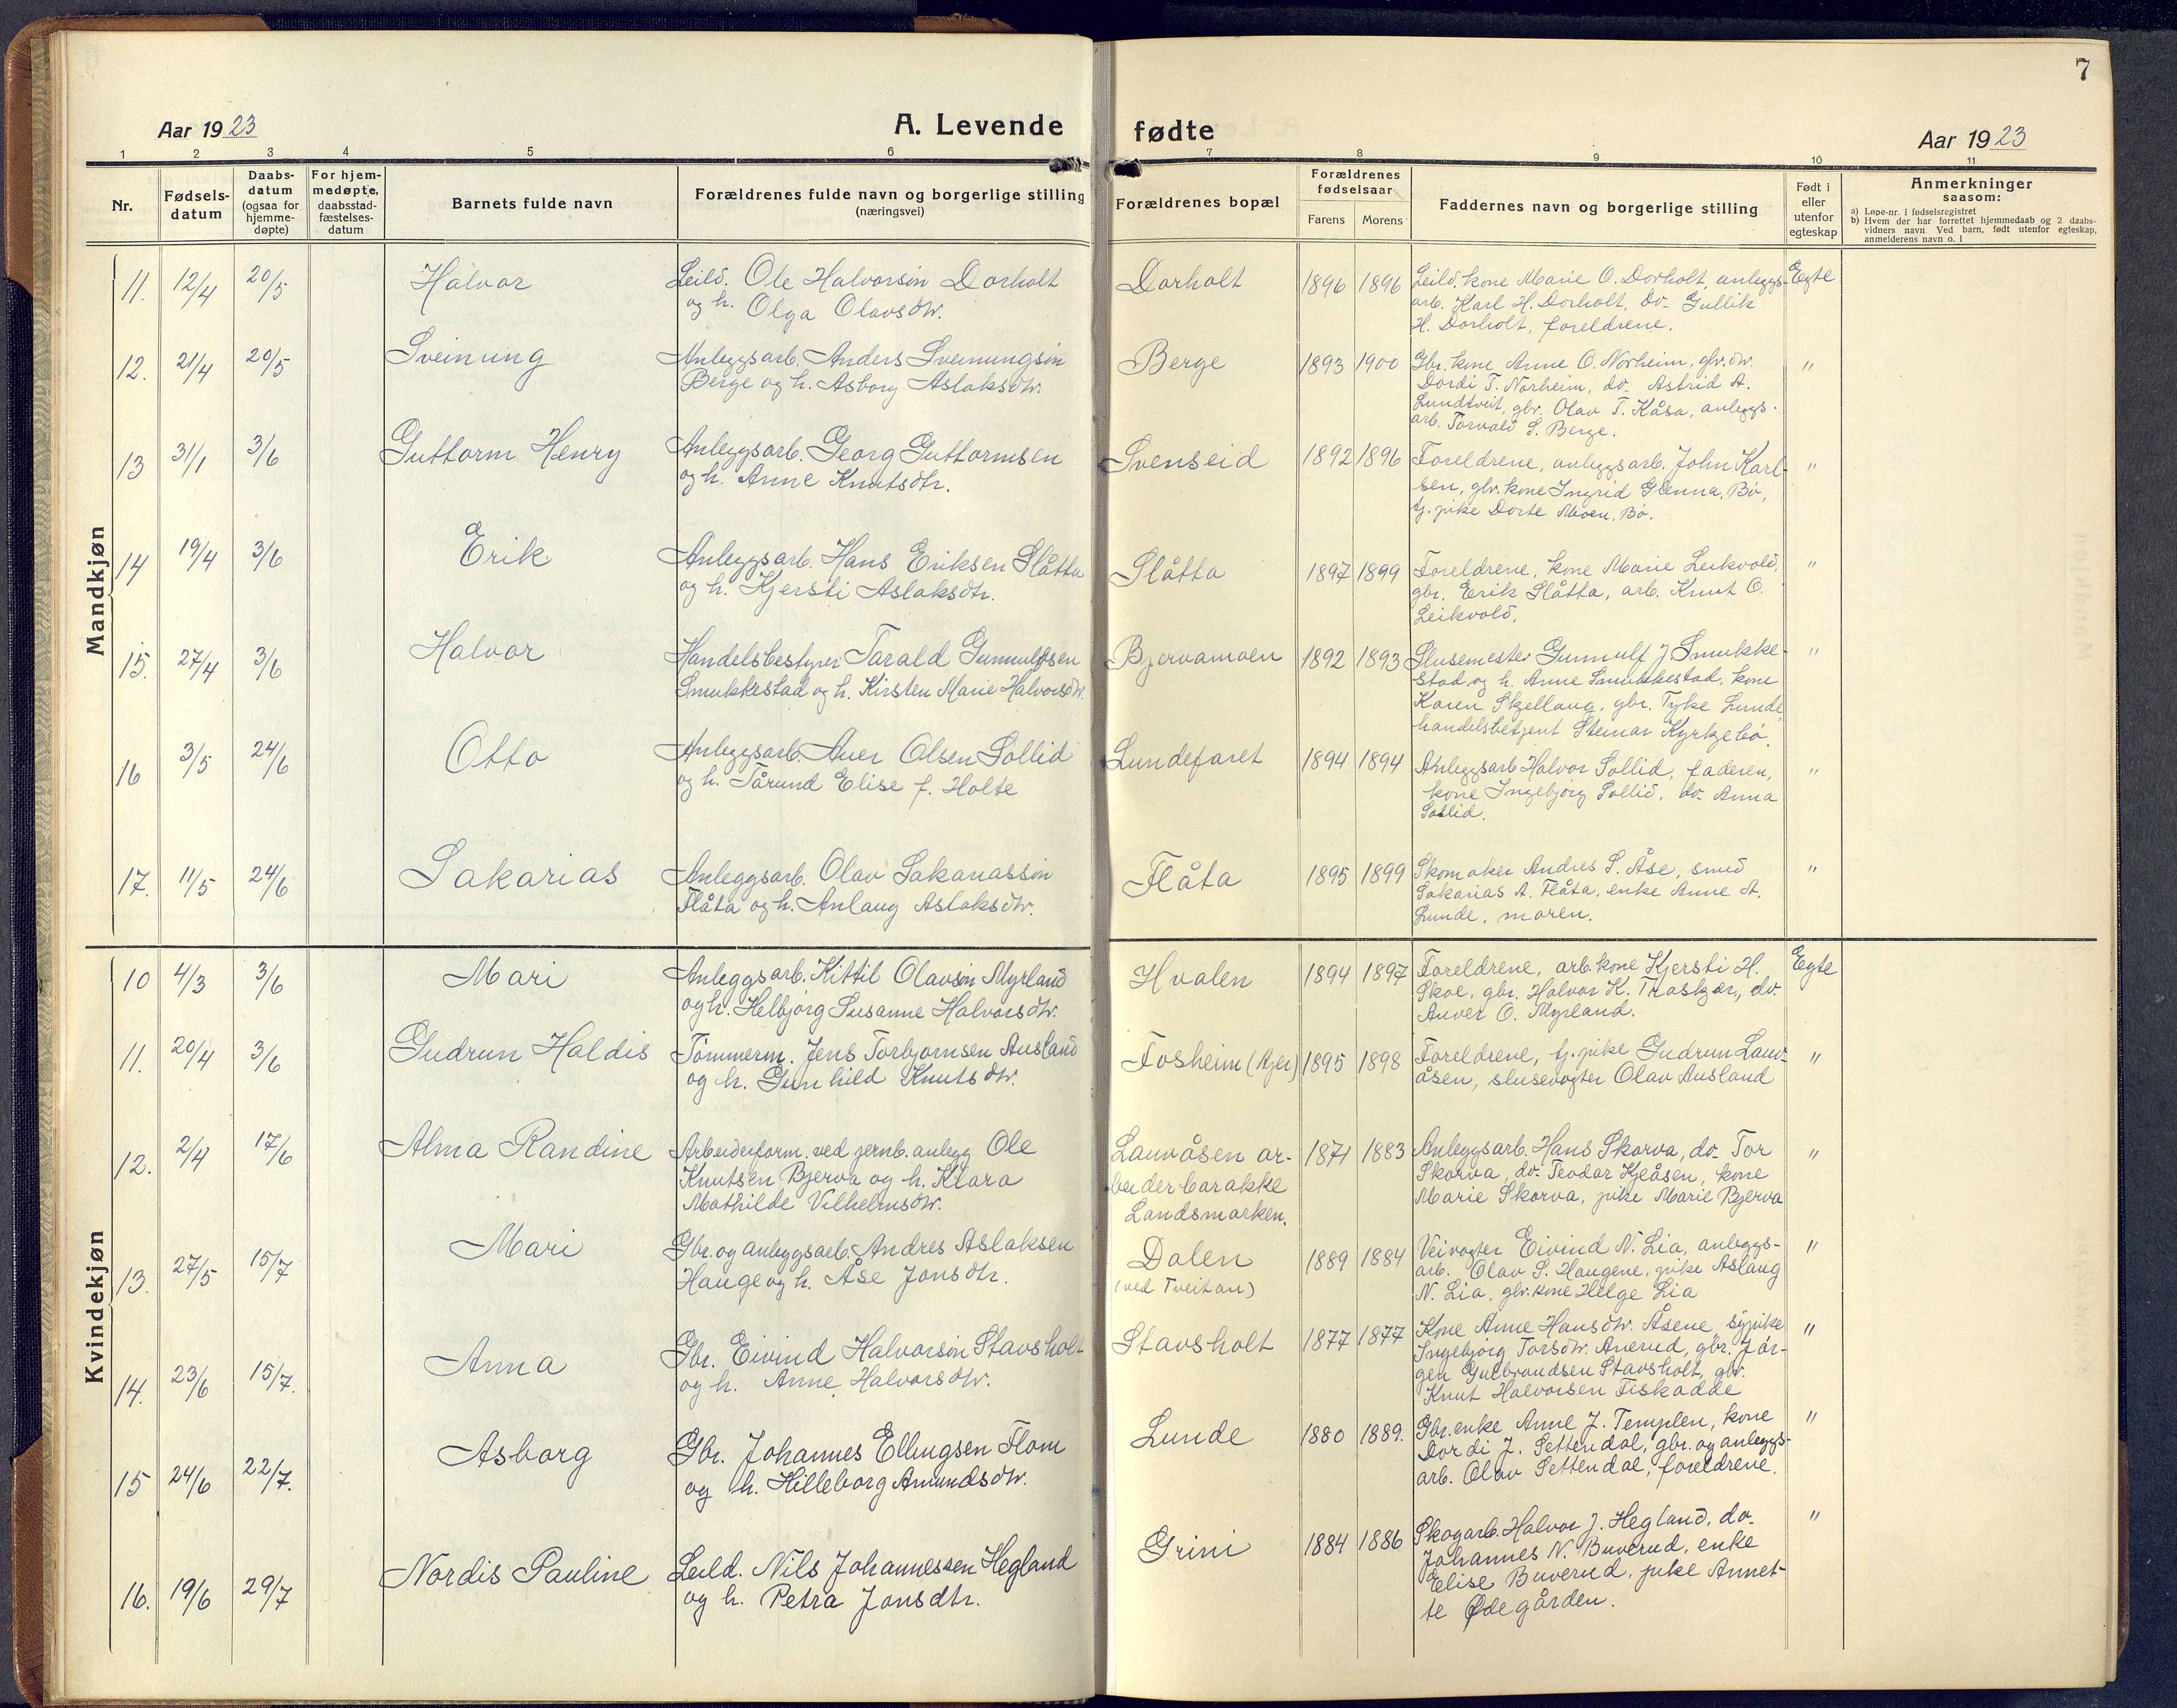 7
Aar 1923
A. Levende
fødte
Aar 1923
1 2 3 4 5 6 7 8 9 10 11
Nr.
Fødsels-
datum
Daabs-
datum
(ogsaa for
hjemme-
døpte)
For hjem-
medøpte,
daabsstad-
fæstelses-
datum
Barnets fulde navn
Forældrenes fulde navn og borgerlige stilling
(næringsvei)
Forældrenes bopæl
Forældrenes
fødselsaar
Farens Morens
Faddernes navn og borgerlige stilling
Født i
eller
utenfor
egteskap
Anmerkninger
saasom:
a) Løpe-nr. i fødselsregistret
b) Hvem der har forrettet hjemmedaab og 2 daabs-
vidners navn Ved barn, født utenfor egteskap,
anmelderens navn o. l
Mandkjøn
11. 12/4 20/5 Halvor
Leild. Ole Halvorson Dorholt
og h. Olga Olavsdtr.
Dorholt 1896 1896
Leild. kone Marie O. Dorholt, anleggs-
arb. Karl H. Dorholt, do- Gullik
H. Dorholt, foreldrene.
Egte
12. 21/4 20/5 Sveinung
Anleggsarb. Anders Sveinungson
Berge og h. Asborg Aslaksdtr.
Berge 1893 1900
Gbr. kone Anne O. Norheim, gbr. dtr.
Dordi T. Norheim, do- Astrid A.
Lundtveit, gbr. Olav T. Kåsa, anleggs-
arb. Torvald S. Berge.
"
13 31/1 3/6 Guttorm Henry
Anleggsarb. Georg Guttormsen
og h. Anne Knutsdtr.
Svenseid 1892 1896
Foreldrene, anleggsarb. John Karl-
sen, gbr. kone Ingrid Glenna, Bø,
tj. pike Dorte Moen, Bø.
"
14 19/4 3/6 Erik
Anleggsarb. Hans Eriksen Slåtta
og h. Kjersti Aslaksdtr.
Slåtta 1897 1899
Foreldrene, kone Marie Leikvold,
gbr. Erik Slåtta, arb. Knut O.
Leikvold.
"
15. 27/4 3/6 Halvor
Handelsbestyrer Tarald Gunnulfsen
Smukkestad og h. Kirsten Marie Halvorsdtr.
Bjervamoen 1892 1893
Slusemester Gunnulf J Smukke-
stad og h. Anne Smukkestad, kone
Karen Skjellaug, gbr. Tyke Lunde
handelsbetjent Steinar Kyrkjebø.
"
16 3/5 24/6 Otto
Anleggsarb. Aver Olsen Sollid
og h. Tårund Elise f. Holte
Lundefaret 1894 1894
Anleggsarb Halvor Sollid, faderen,
kone Ingebjørg Sollid, do- Anna
Sollid.
"
17. 11/5 24/6 Sakarias
Anleggsarb. Olav Sakariasson
Flåta og h. Anlaug Aslaksdtr.
Flåta 1895 1899
Skomaker Andres S. Åse, smed
Sakarias A. Flåta, enke Anne A.
Lunde, moren.
"
Kvindekjøn
10 4/3 3/6 Mari
Anleggsarb. Kittil Olavson Myrland
og h. Helbjørg Susanne Halvorsdtr.
Hvalen 1894 1897
Foreldrene, arb. kone Kjersti H.
Skoe, gbr. Halvor K. Traskjær, do-
Anver O. Myrland.
Egte
11. 20/4 3/6 Gudrun Haldis
Tømmerm. Jens Torbjørnsen Ausland
og h. Gunhild Knutsdtr.
Fosheim (Kjer) 1895 1898
Foreldrene, tj. pike Gudrun Lauv-
åsen, slusevogter Olav Ausland
"
12. 2/4 17/6 Alma Randine
Arbeiderform. ved jernb. anlegg Ole
Knutsen Bjerva og h. Klara
Mathilde Vilhelmsdtr.
Lauvåsen ar-
beiderbarakke
Landsmarken.
1871 1883
Anleggsarb. Hans Skorva, do- Tor
Skorva, do- Teodor Kjeåsen, kone
Marie Skorva, pike Marie Bjerva
"
13. 27/5 15/7 Mari
Gbr. og anleggsarb. Andres Aslaksen
Hauge og h. Åse Jonsdtr.
Dalen
(ved Tveitan)
1889 1884
Veivogter Eivind N. Lia, anleggs-
arb. Olav S. Haugene, pike Aslaug
N. Lia, gbr. kone Helge Lia
"
14. 23/6 15/7. Anna
Gbr. Eivind Halvorson Stavsholt
og h. Anne Halvorsdtr.
Stavsholt 1877 1877
Kone Anne Hansdtr. Åsene, sypike
Ingebjørg Torsdtr. Anerud, gbr. Jør-
gen Gulbrandsen Stavsholt, gbr.
Knut Halvorsen Fiskodde
"
15 24/6 22/7. Asborg
Gbr. Johannes Ellingsen Flom
og h. Hilleborg Amundsdtr.
Lunde 1880 1889.
Gbr. enke Anne J. Templen, kone
Dordi J. Settendal, gbr. og anleggs-
arb. Olav Settendal, foreldrene.
"
16. 19/6 29/7 Nordis Pauline
Leild. Nils Johannessen Hegland
og h. Petra Jonsdtr.
Grini 1884 1886
Skogarb. Halvor J. Hegland, do-
Johannes N. Buverud, enke
Elise Buverud, pike Annet-
te Ødegården.
"